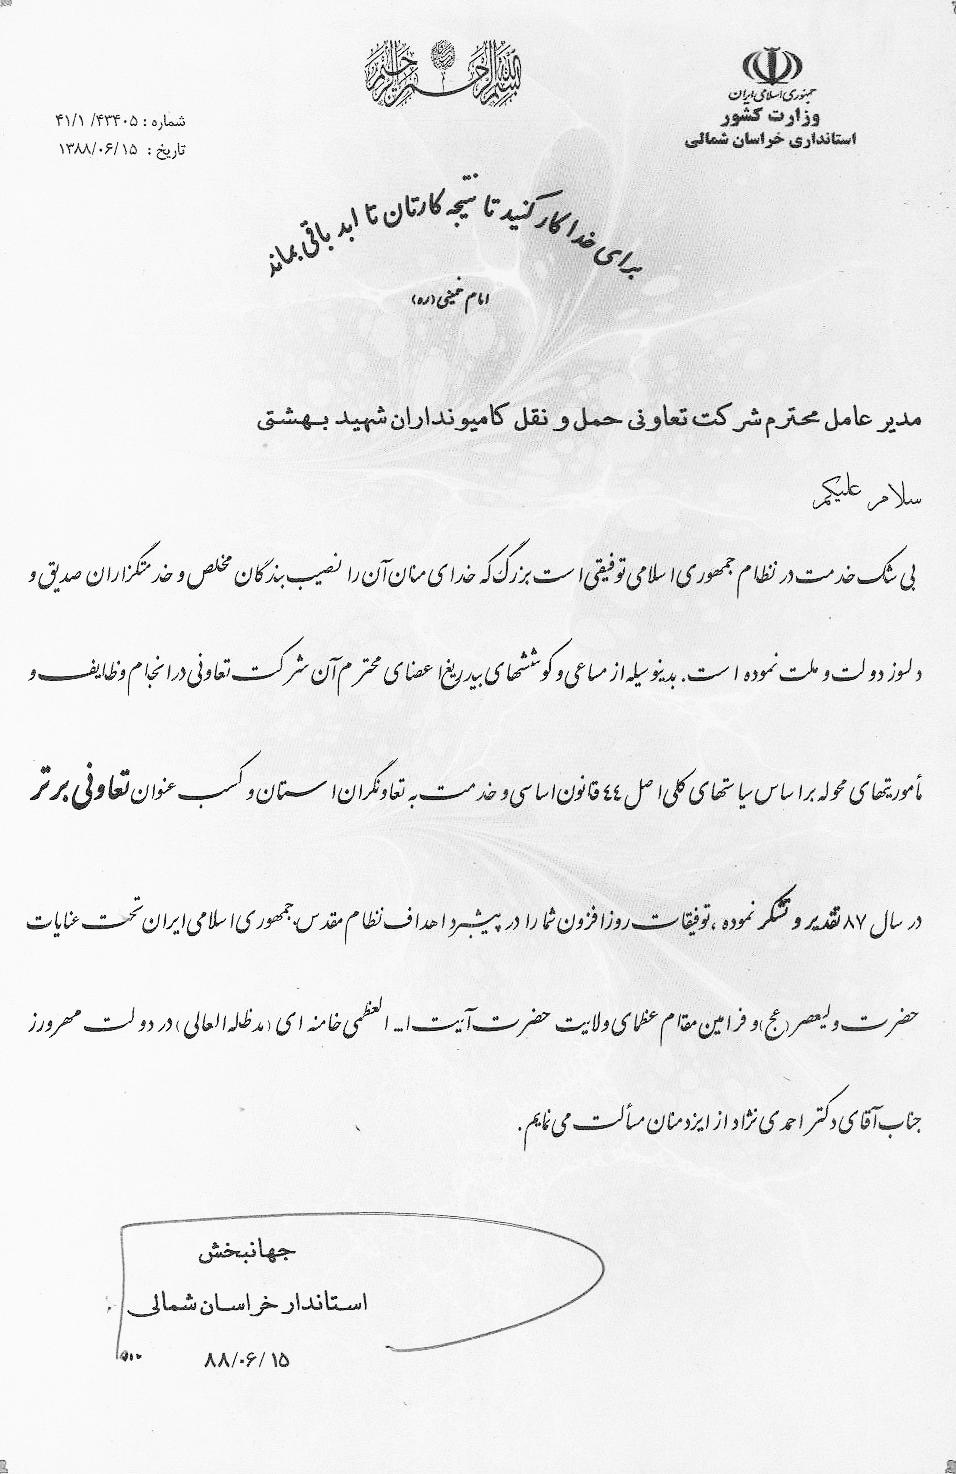 بسم الله الرحمن الرحیم
جمهوری اسلامی ایران
وزارت کشور
استانداری خراسان شمالی
شماره : ۴۳۴۰۵/ ۴۱/۱
تاریخ : ۱۳۸۸/۰۶/۱۵
برای خدا کار کنید تا نتیجه کارتان تا ابد باقی بماند
امام خمینی (ره)
مدیر عامل محترم شرکت تعاونی حمل و نقل کامیونداران شهید بهشتی
سلام علیکم
بی شک خدمت در نظام جمهوری اسلامی توفیقی است بزرگ که خدای منان آن را نصیب بندگان مخلص و خدمتگزاران صدیق و
دلسوز دولت و ملت نموده است. بدینوسیله از مساعی و کوششهای بیدریغ اعضای محترم آن شرکت تعاونی در انجام وظایف و
مأموریتهای محوله بر اساس سیاستهای کلی اصل ۴۴ قانون اساسی و خدمت به تعاونگران استان و کسب عنوان تعاونی برتر
در سال ۸۷ تقدیر و تشکر نموده ، توفیقات روزافزون شما را در پیشبرد اهداف نظام مقدس جمهوری اسلامی ایران تحت عنایات
حضرت ولیعصر (عج) و فرامین مقام عظمای ولایت حضرت آیت ا... العظمی خامنه ای (مدظله العالی) در دولت مهرورز
جناب آقای دکتر احمدی نژاد از ایزد منان مسألت می نمایم.
جهانبخش
استاندار خراسان شمالی
۸۸/۰۶/۱۵